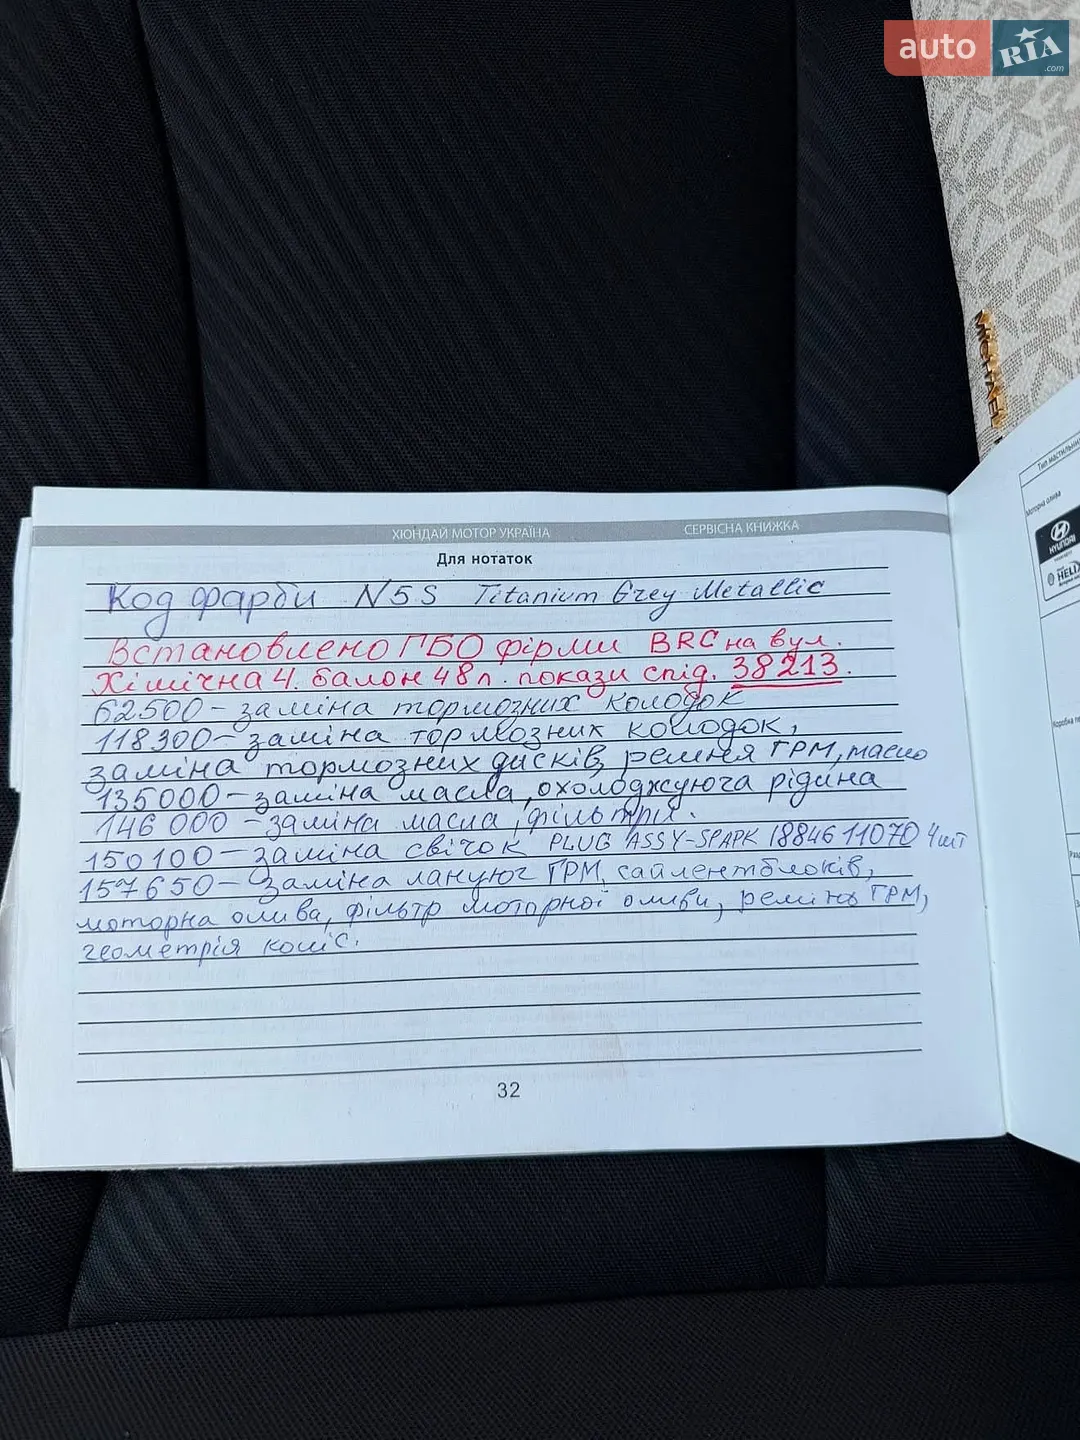 auto RIA .com
MICHAEL
ХЮНДАЙ МОТОР УКРАЇНА СЕРВІСНА КНИЖКА
Для нотаток
Код фарби N5S Titanium Grey Metallic
Встановлено ГБО фірми BRC на вул.
Хімічна 4. балон 48л. покази спід. 38213.
62500 – заміна тормозних колодок
118300 – заміна тормозних колодок,
заміна тормозних дисків, ремня ГРМ, масло
135000 – заміна масла, охолоджуюча рідина
146000 – заміна масла, фільтри.
150100 – заміна свічок PLUG ASSY-SPARK 1884611070 4шт
157650 – заміна ланцюг ГРМ, сайлентблоків,
моторна олива, фільтр моторної оливи, ремінь ГРМ,
геометрія коліс.
32
Тип мастильни
Моторна олива
HYUNDAI
HELIX
Коробка пе